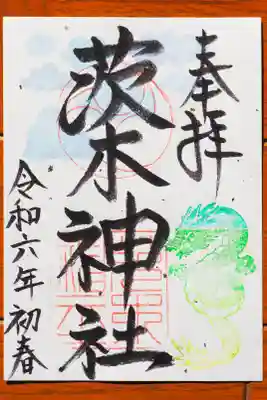 奉拝
茨木神社
令和六年初春